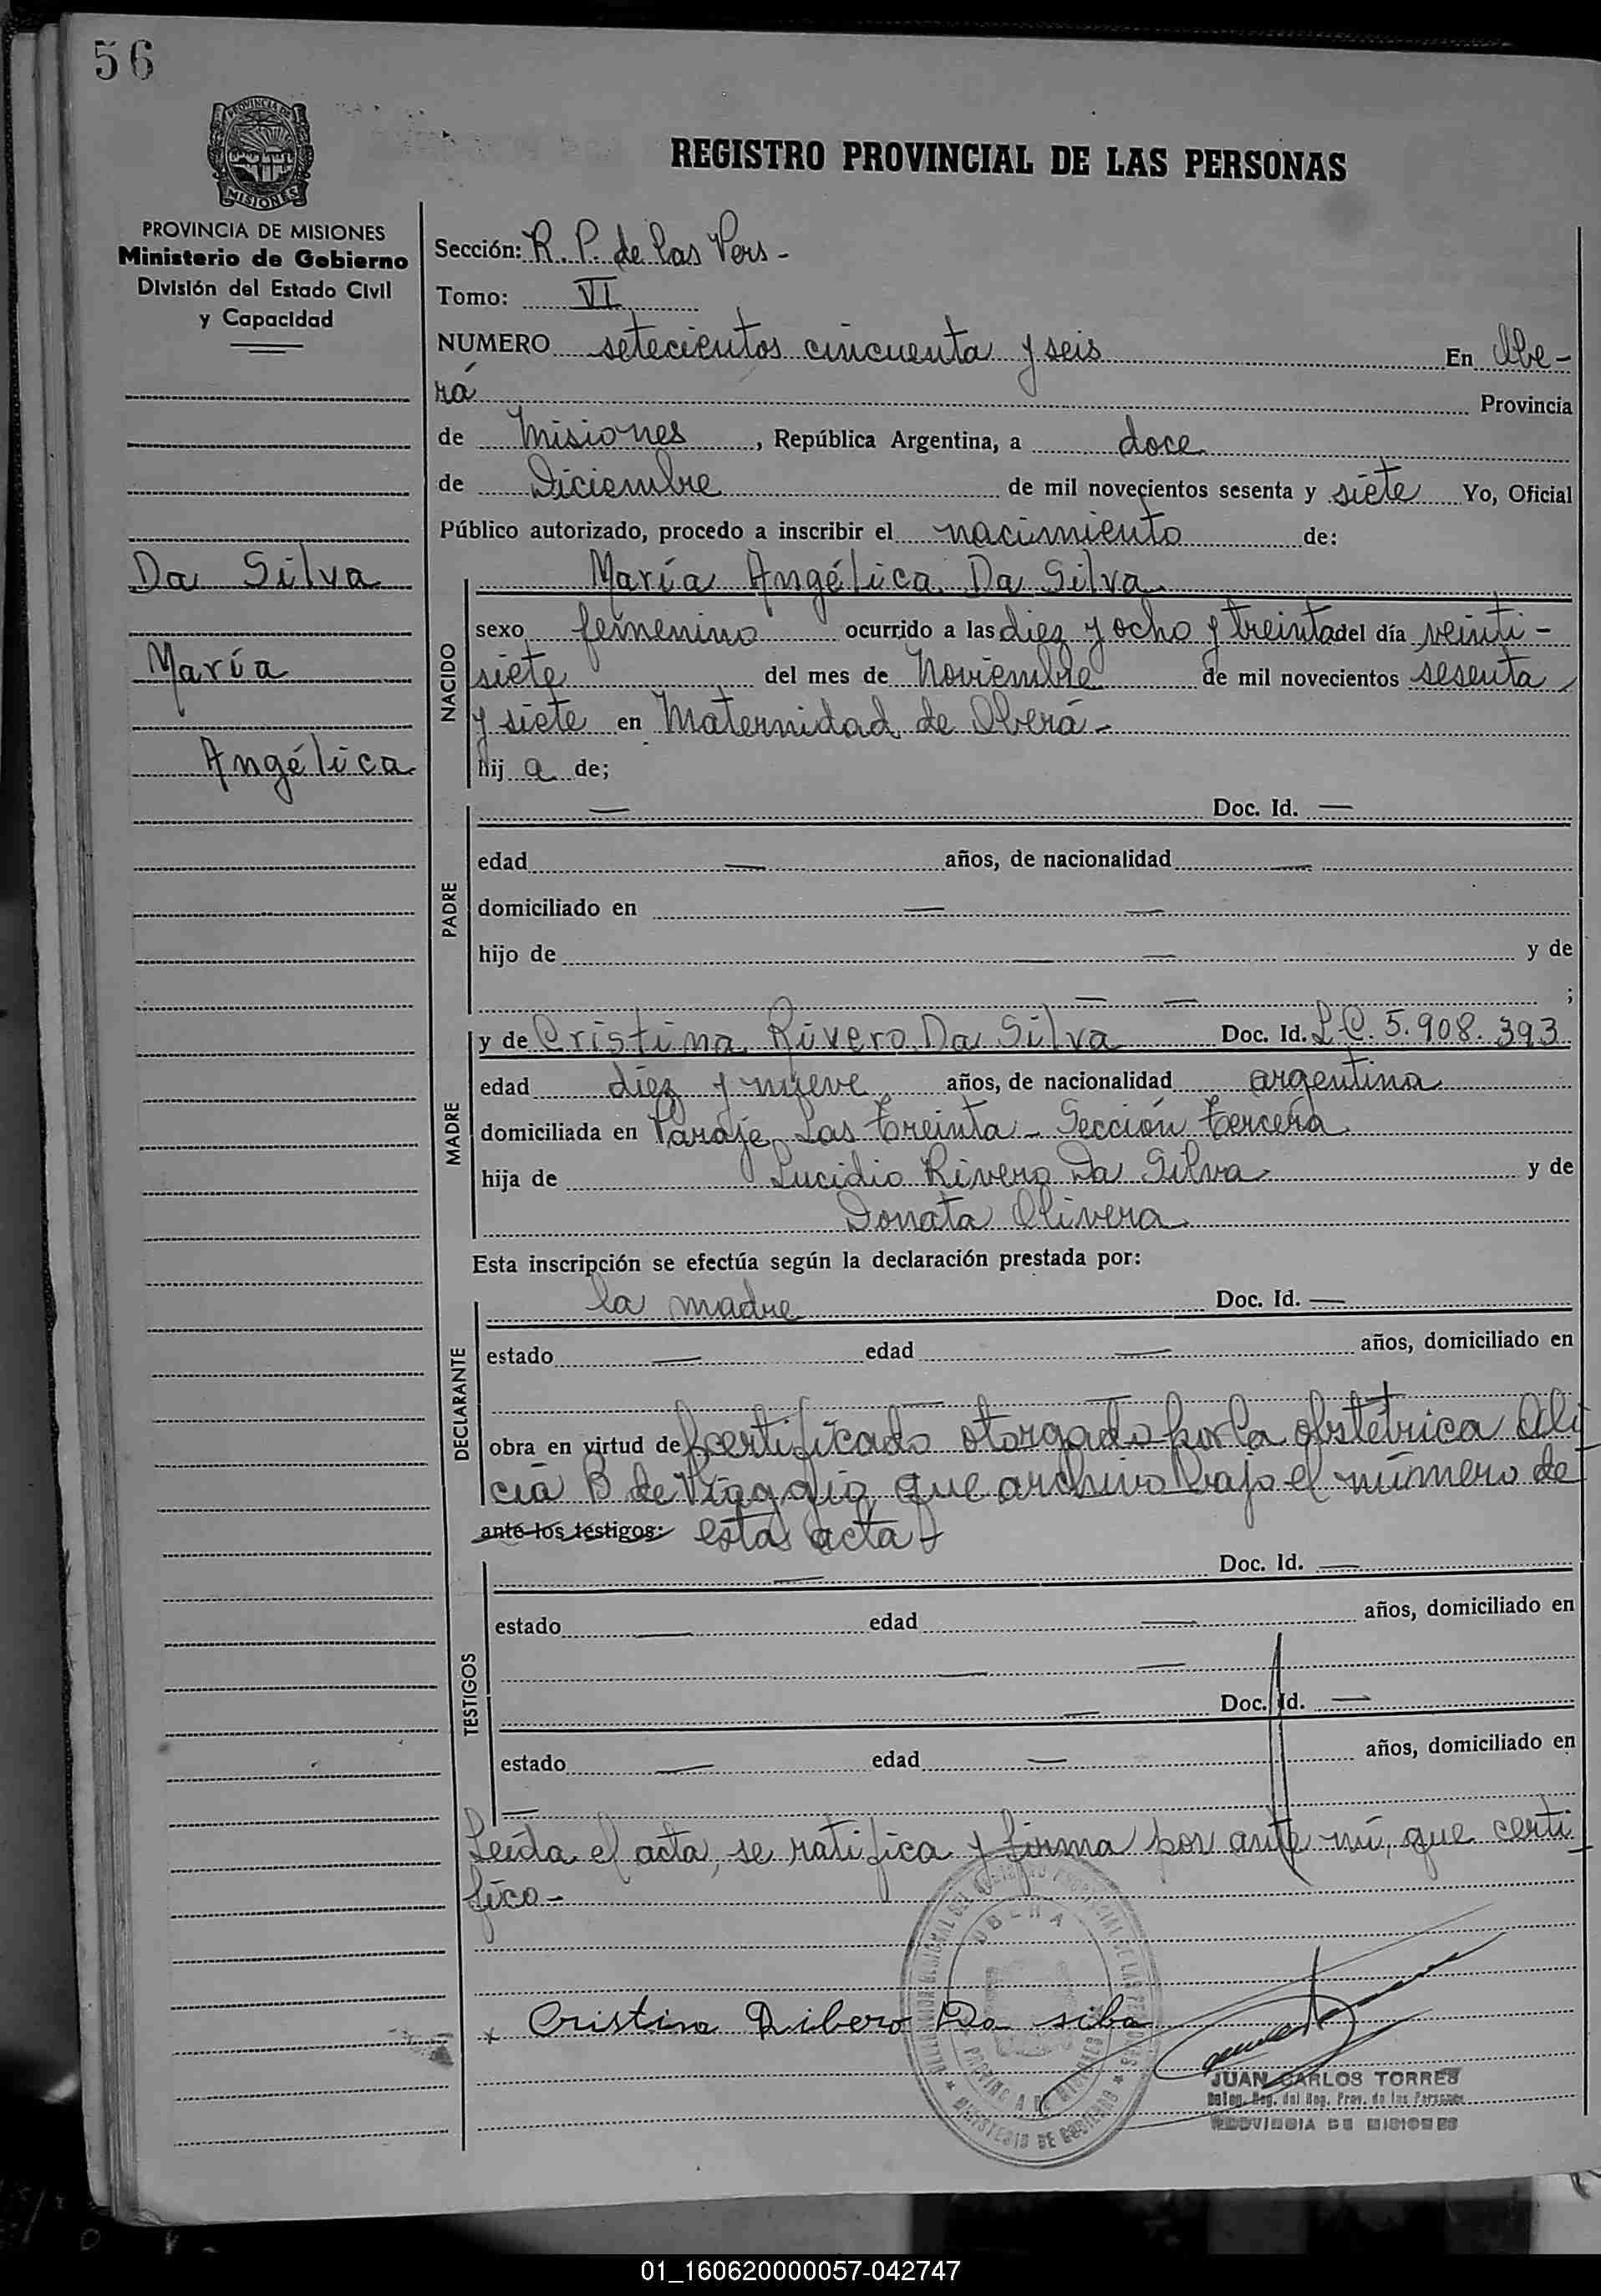 56
PROVINCIA DE
MISIONES
REGISTRO PROVINCIAL DE LAS PERSONAS
PROVINCIA DE MISIONES
Ministerio de Gobierno
División del Estado Civil
y Capacidad
Da Silva
María
Angélica
Sección: R. P. de las Pers -
Tomo: VI
NUMERO setecientos cincuenta y seis En Obe-
rá Provincia
de Misiones, República Argentina, a doce
de Diciembre de mil novecientos sesenta y siete Yo, Oficial
Público autorizado, procedo a inscribir el nacimiento de:
NACIDO
María Angélica Da Silva
sexo femenino ocurrido a las diez y ocho y treinta del día veinti-
siete del mes de Noviembre de mil novecientos sesenta
y siete en Maternidad de Oberá -
hij a de;
PADRE
— Doc. Id. —
edad — años, de nacionalidad —
domiciliado en — —
hijo de — — y de
— — ;
MADRE
y de Cristina Rivero Da Silva Doc. Id. L.C. 5.908.393
edad diez y nueve años, de nacionalidad argentina
domiciliada en Paraje Las Treinta - Sección tercera
hija de Lucidio Rivero Da Silva y de
Donata Olivera
Esta inscripción se efectúa según la declaración prestada por:
DECLARANTE
la madre Doc. Id. —
estado — edad — años, domiciliado en
— —
obra en virtud de certificado otorgado por la obstétrica Ali
cia B de Viaggio que archivo bajo el número de
ante los testigos: esta acta
TESTIGOS
— Doc. Id. —
estado — edad — años, domiciliado en
— —
— Doc. Id. —
estado — edad — años, domiciliado en
—
Leída el acta, se ratifica y firma por ante mí, que certi
fico -
x Cristina Ribero Da silba
OBERA
PROVINCIA DE MISIONES
MINISTERIO DE GOBIERNO
JUAN CARLOS TORRES
Deleg. Reg. del Reg. Prov. de las Personas
PROVINCIA DE MISIONES
01_160620000057-042747